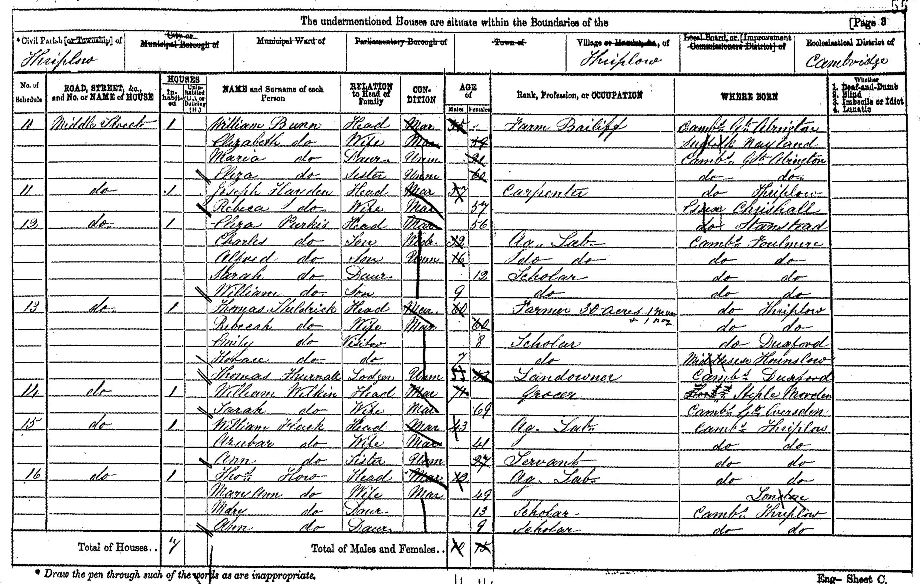 55
The undermentioned Houses are situate within the Boundaries of the [Page 3
*Civil Parish [or Township] of Thriplow City or Municipal Borough of Municipal Ward of Parliamentary Borough of Town of Village or Hamlet, &c., of Thriplow Local Board, or [Improvement Commissioners District] of Ecclesiastical District of Cambridge
No. of Schedule ROAD, STREET, &c., and No. or NAME of HOUSE HOUSES Inhabited Uninhabited (U.), or Building (B.) NAME and Surname of each Person RELATION to Head of Family CONDITION AGE of Males Females Rank, Profession, or OCCUPATION WHERE BORN Whether 1. Deaf-and-Dumb 2. Blind 3. Imbecile or Idiot 4. Lunatic
Middle Street 1 William Bunn Head Mar Farm Bailiff Camb. Gt Abington
Elizabeth do Wife Mar Suffolk Nayland
Maria do Daur Unm 21 Camb. Gt Abington
Eliza do Sister Unm 60 do do
11 do 1 Joseph Head Mar Carpenter do Thriplow
Rebeca do Wife Mar 57 Essex Chrishall
do 1 Eliza Perkis Head Mar 56 do Stanstead
Charles do Son Ag. Lab Camb. Foulmire
Alfred do Son Unm 16 do do do do
Sarah do Daur 12 Scholar do do
William do Son 9 do do do
13 do 1 Thomas Head Mar 60 Farmer 30 Acres 1 man + 1 boy do Thriplow
Rebecah do Wife Mar 60 do do
Emily do Visitor 8 Scholar do Duxford
Horace do do 7 do Middlesex Hounslow
Thomas Lodger Unm Landowner Camb. Duxford
14 do 1 William Wilkin Head Mar Grocer Steple Morden
Sarah do Wife Mar 69 Camb. Gt
15 do 1 William Head Mar 43 Ag. Lab Camb. Thriplow
do Wife Mar 41 do do
Ann do Sister Unm 27 Servant do do
16 do 1 Thos How Head Mar Ag. Lab do do
Mary Ann do Wife Mar 49 London
Mary do Daur 13 Scholar Camb. Thriplow
Ann do Daur 9 Scholar do do
Total of Houses.. 7 Total of Males and Females..
* Draw the pen through such of the words as are inappropriate. Eng— Sheet C.